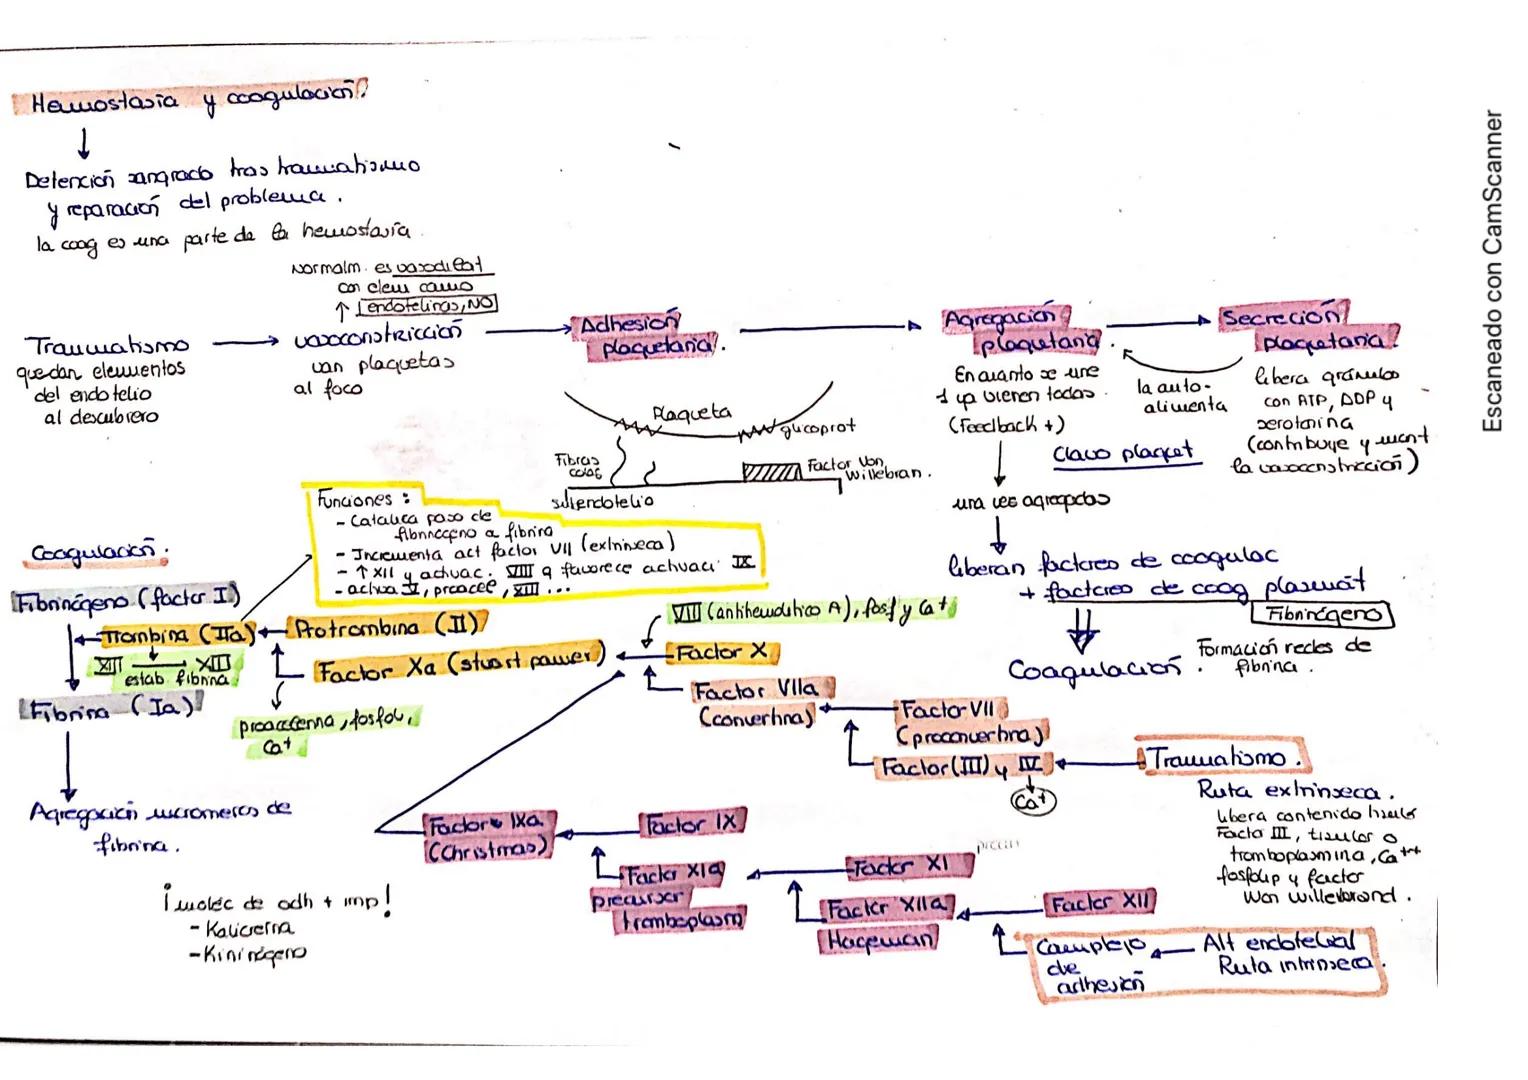 Hemostasia y coagulación:
Detención sangrado tras traumatismo
y reparación del problema.
la coag es una parte de la hemostasia.
Normalm. es vasodilat
con elem como
↑ endotelinas, NO
Traumatismo
quedan elementos
del endotelio
al descubiero
vasoconstricción
van plaquetas
al foco
Adhesión
plaquetaria.
Plaqueta
glucoprot
Fibras
colag
Factor Von
Willebran.
subendotelio
Agregación
plaquetaria.
En cuanto se une
1 ya vienen todas.
(Feedback +)
la auto-
alimenta
Clavo plaquet
Secreción
plaquetaria.
libera gránulos
con ATP, ADP y
serotonina
(contribuye y mant
la vasoconstricción)
una vez agregadas
liberan factores de coagulac
+ factores de coag plasmát
Fibrinógeno
Coagulación.
Formación redes de
fibrina.
Funciones:
- Cataliza paso de
fibrinógeno a fibrina
- Incrementa act factor VII (extrínseca)
- ↑ XII y activac. VIII q favorece activaci IX
- activa V, proacel, XIII...
Coagulación.
Fibrinógeno (factor I)
Trombina (IIa)
Protrombina (II)
XIII → XIII
estab fibrina
Factor Xa (stuart power)
Fibrina (Ia)
proacelerina, fosfol,
Ca+
VIII (antihemolítico A), fosf y Ca+
Factor X
Factor VIIa
(convertina)
Factor VII
(proconvertina)
Factor (III) y IV
Ca+
Traumatismo.
Ruta extrínseca.
libera contenido tisular
Facto III, tisular o
tromboplasmina, Ca++
fosfolip y factor
Von Willebrand.
Agregación micromeros de
fibrina.
Factor IXa
(Christmas)
Factor IX
Factor XIa
precursor
tromboplasm
Factor XI
Factor XIIa
Hageman
Factor XII
Complejo
de
adhesión
Alt endotelial
Ruta intrínseca.
¡moléc de adh + imp!
- Kalicreína
- Kininógeno
Escaneado con CamScanner